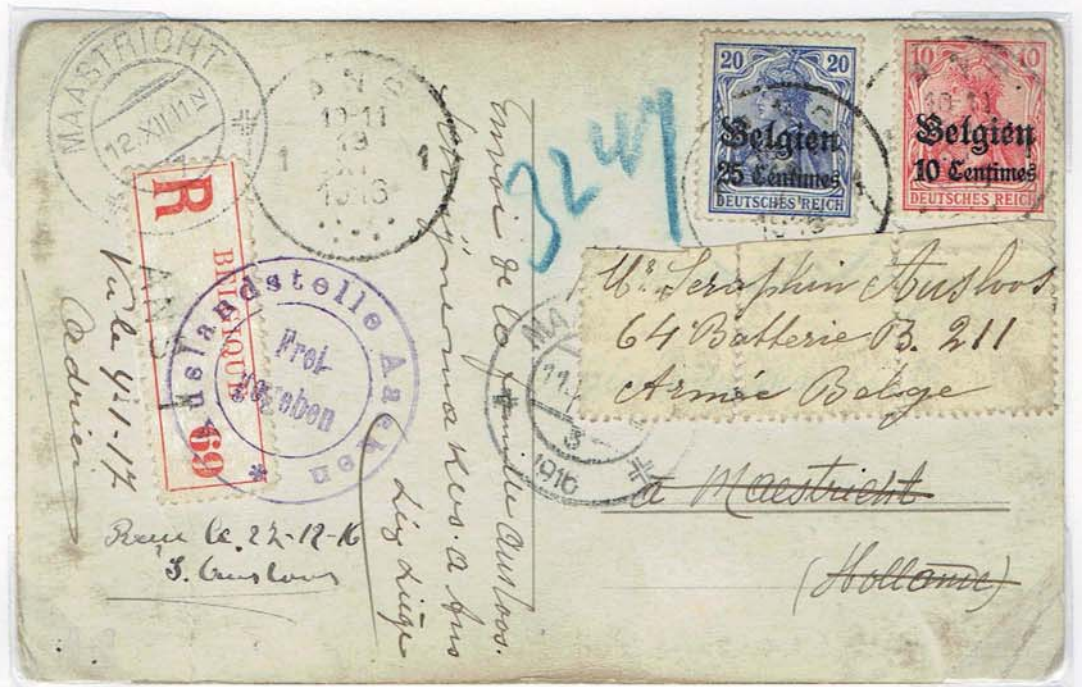 MAASTRICHT
12.XII.11 N
ANS
10-11
1 1
1916
R
BELGIQUE
ANS
69
Auslandstelle Aachen
Frei-
gegeben
Vu le 4-1-17
Adrien
Reçu le 22-12-16
S. Ausloos
Envoi de la famille Ausloos.
a Ans
Lez Liége
20 20
Belgien
25 Centimes
DEUTSCHES REICH
10 10
Belgien
10 Centimes
DEUTSCHES REICH
10-11
Mr. Seraphin Ausloos
64e Batterie B. 211
Armée Belge
MA
11.
3
1916
a Maestricht
(Hollande)